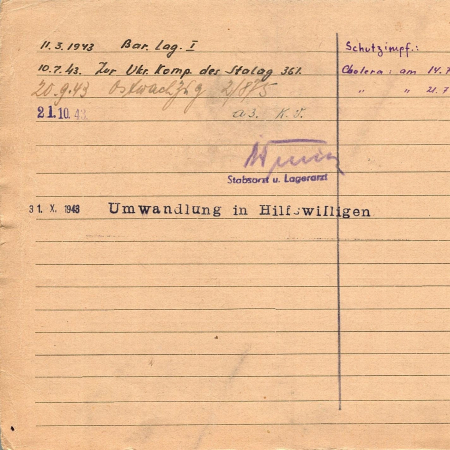 11.3.1943 Bar. Lag. I
Schutzimpf.:
10.7.43. Zur Ukr. Komp. des Stalag 367.
Cholera: am 14.7
20.9.43 Ostwachzug 2/8/5
" " 21.7
21.10.43 a3. K.F.
Stabsarzt u. Lagerarzt
31. X. 1943 Umwandlung in Hilfswilligen